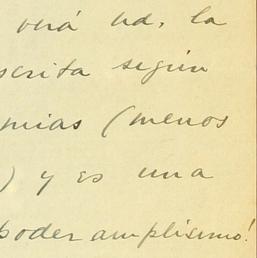 verá Ud, la
scrita según
mias (menos
) y es una
poder amplísimo!